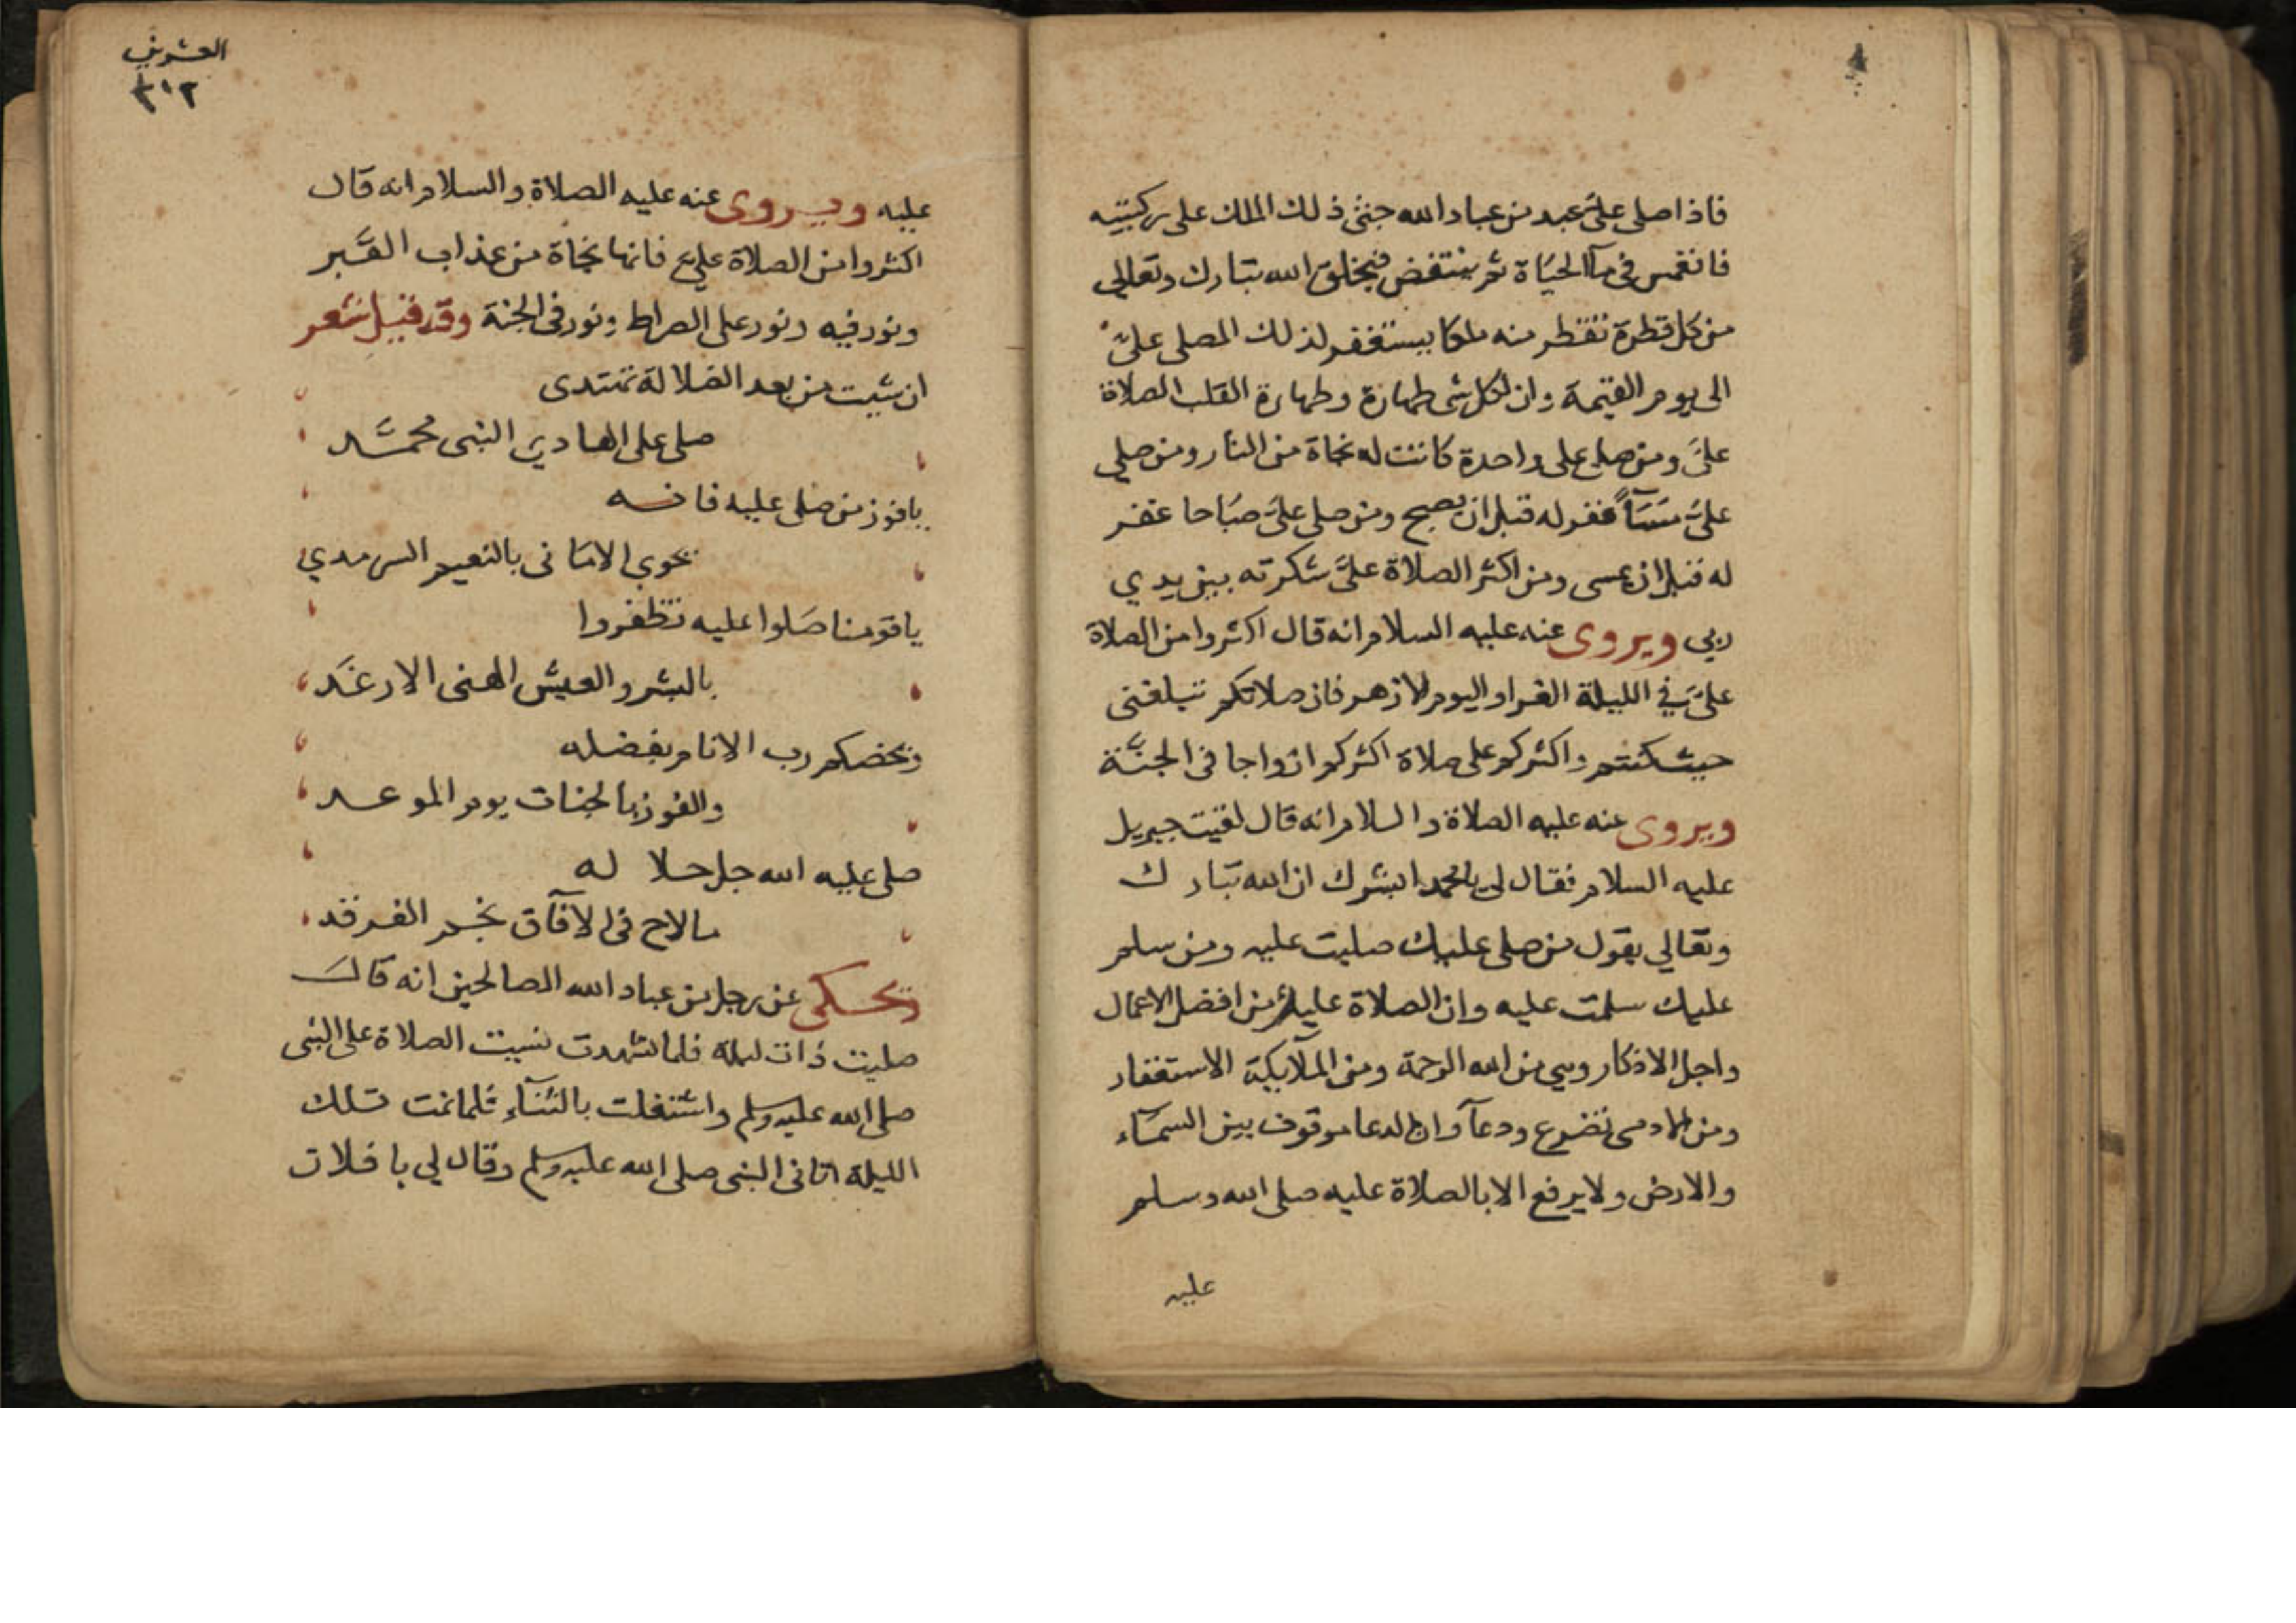 فاذا صلى علىّ عبد من عباد الله جثى ذلك الملك على ركبتيه
فانغمس فى مآ الحياة ثم ينتفض فيخلق الله تبارك وتعالى
من كل قطرة تقطر منه ملكا يستغفر لذلك المصلى علىّ
الى يوم القيمة وان لكل شى طهارة وطهارة القلب الصلاة
علىَّ ومن صلى على واحدة كانت له نجاة من النار ومن صلى
علىَّ مسَآً غفر له قبل ان يصبح ومن صلى علىَّ صَباحا غفر
له قبل ان يمسى ومن اكثر الصلاة علىَّ شكرته بين يدي
ربي ويروى عنه عليه السلام انه قال اكثروا من الصلاة
علىَّ في الليلة الغرا واليوم الازهر فان صلاتكم تبلغنى
حيث كنتم واكثركم على صلاة اكثركم ازواجا فى الجنَّة
ويروى عنه عليه الصلاة والسلام انه قال لقيت جبريل
عليه السلام فقال لى يا محمد ابشرك ان الله تبارك
وتعالي يقول من صلى عليك صليت عليه ومن سلم
عليك سلمت عليه وان الصلاة عليك من افضل الاعمال
واجل الاذكار وهي من الله الرحمة ومن الملآيكة الاستغفار
ومن الادمى تضرع ودعآ وان الدعا موقوف بين السمآء
والارض ولا يرفع الا بالصلاة عليه صلى الله وسلم
عليه
العشرين
٣١٢
عليه ويروى عنه عليه الصلاة والسلام انه قال
اكثروا من الصلاة علىّ فانها نجاة من عذاب القَبر
ونور فيه ونور على الصراط ونور فى الجنة وقد قيل شعر
ان شيت من بعد الضلالة تهتدى
صلى على الهادي النبى محمَّد
يافوز من صلى عليه فانه
يحوي الامانى بالنعيم السرمدي
ياقومنا صَلوا عليه تظفروا
بالبشر والعيش الهنى الارغَد
ويخصكم رب الانام بفضله
والفوز بالجنات يوم الموعد
صلى عليه الله جل جلاله
مالاح فى الآفاق نجم الفرقد
ويحكى عن رجل من عباد الله الصالحين انه قالَ
صليت ذات ليلة فلما تشهدت نسيت الصلاة على النبى
صلى الله عليه وسلم واشتغلت بالثنآء فلما نمت تلك
الليلة اتانى النبى صلى الله عليه وسلم وقال لي يا فلان